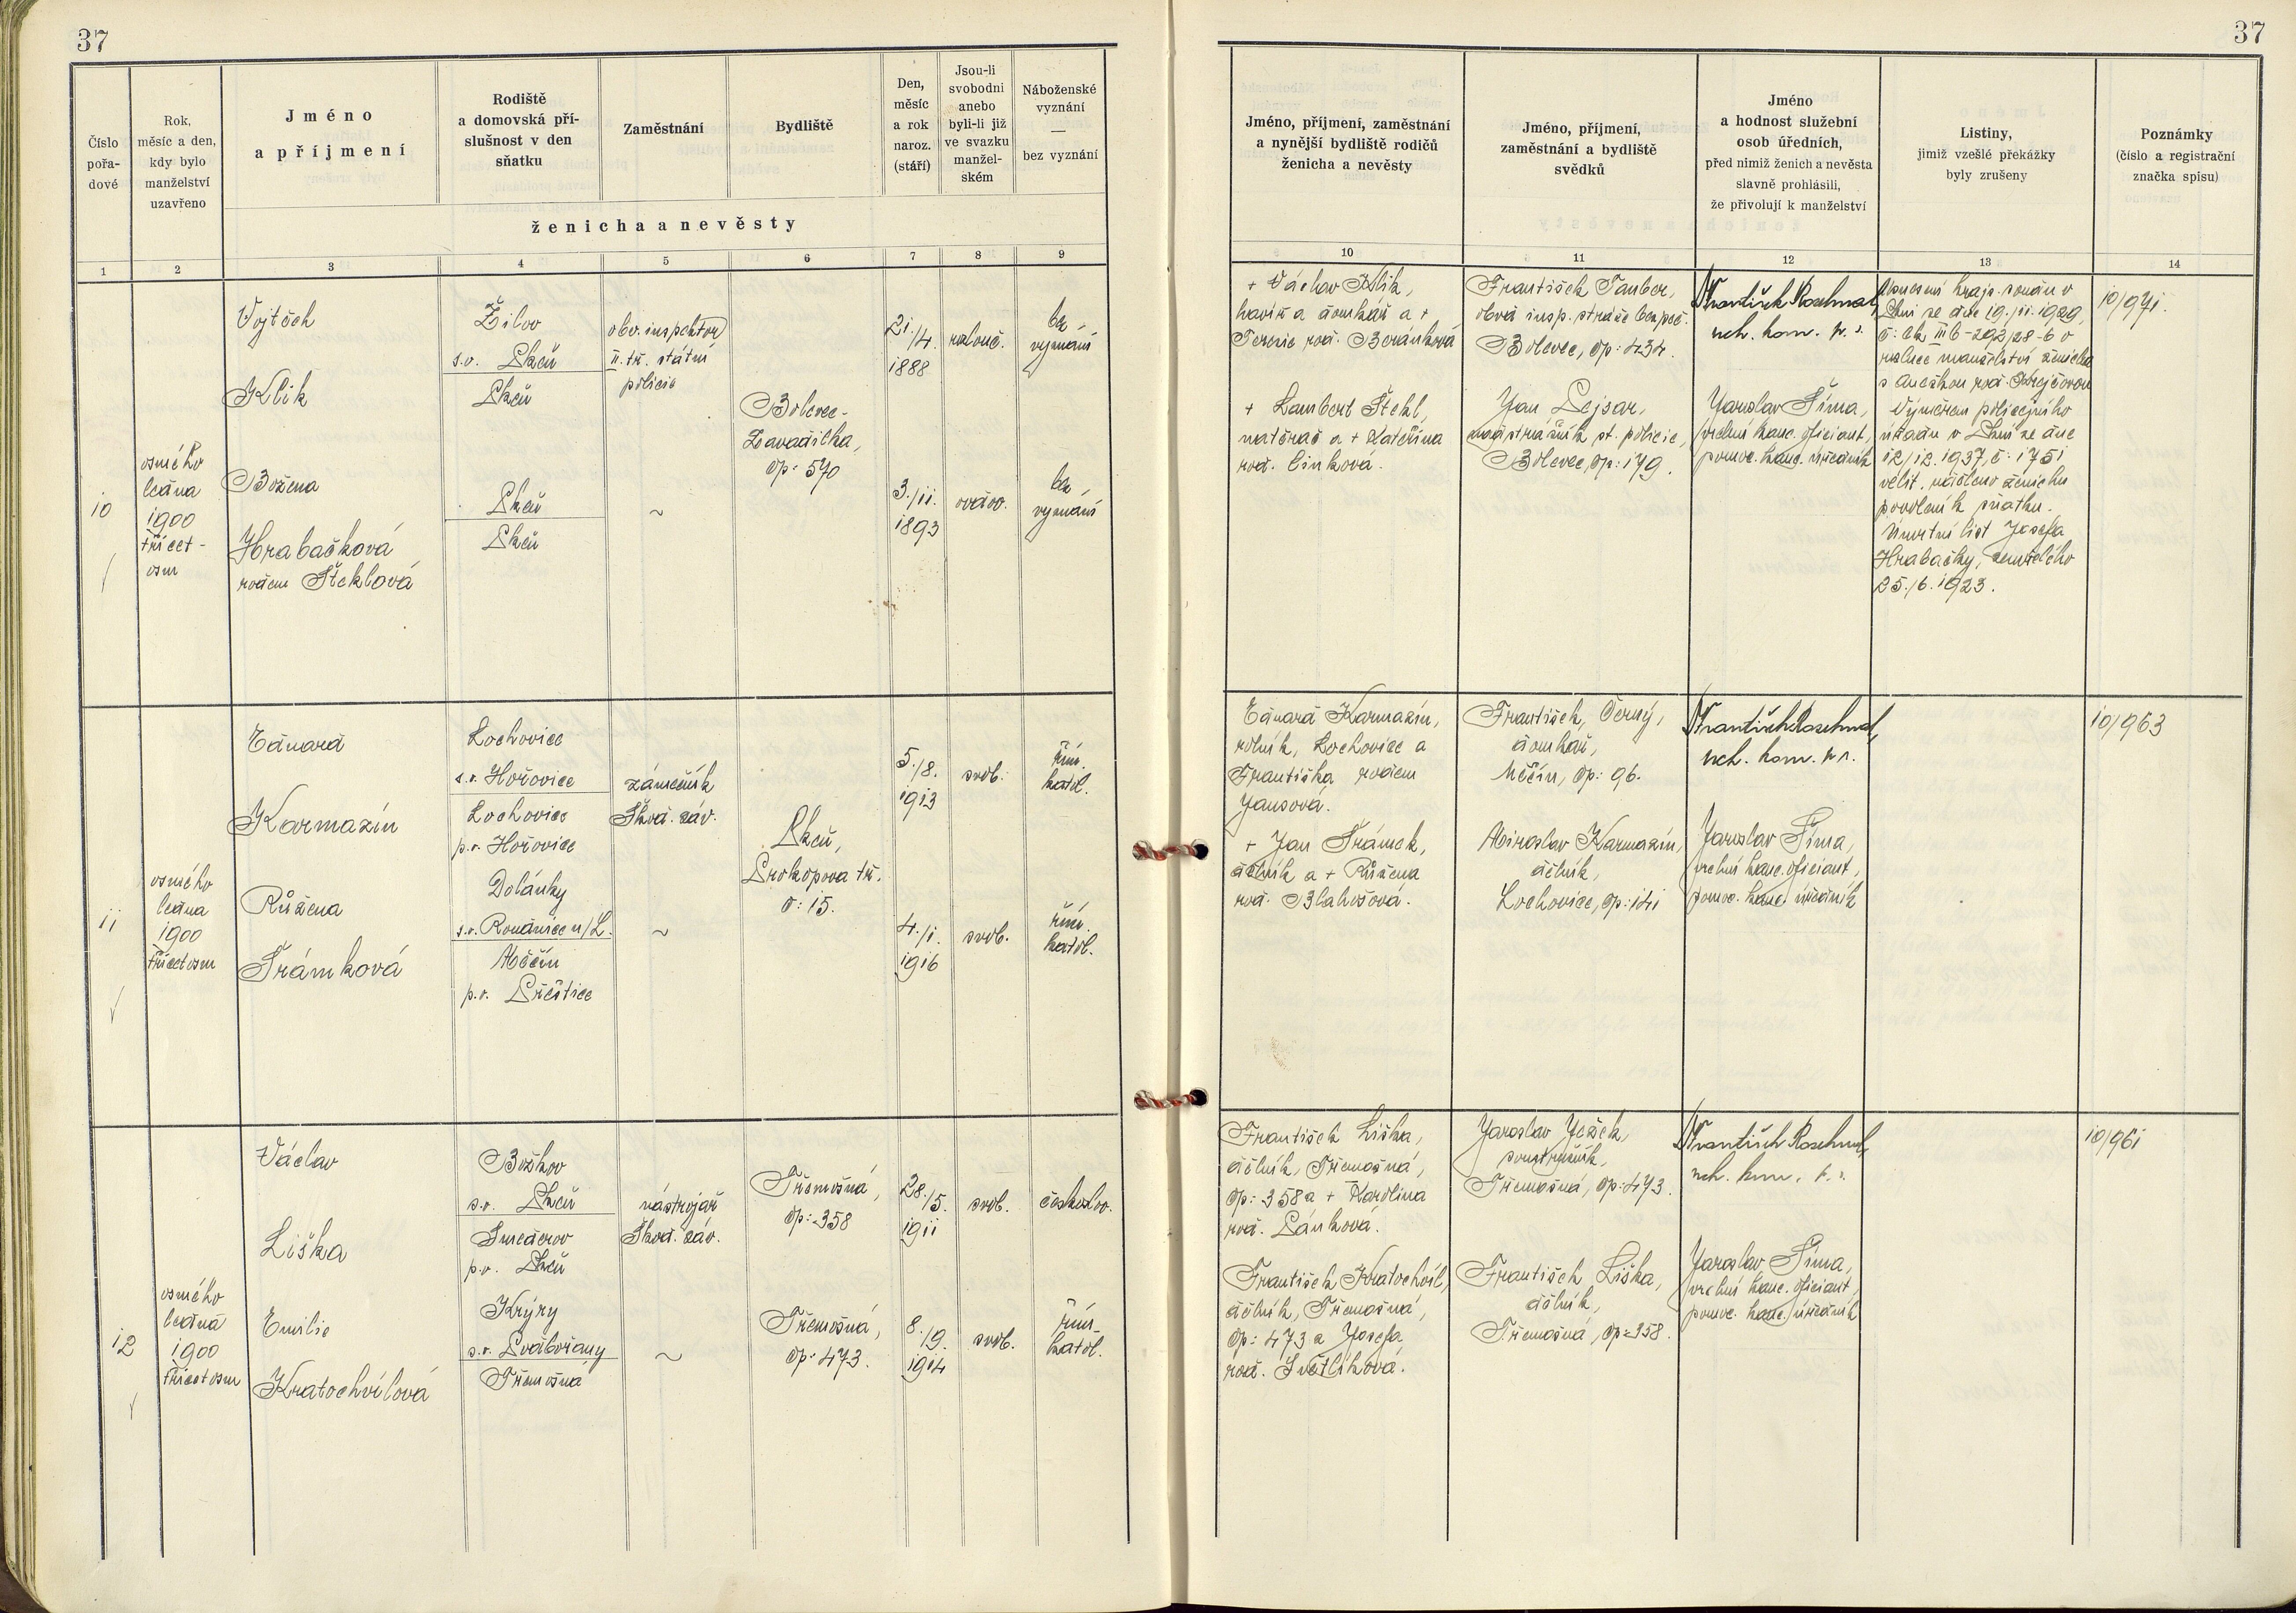 37
37
Číslo
pořa-
dové
Rok,
měsíc a den,
kdy bylo
manželství
uzavřeno
Jméno
a příjmení
Rodiště
a domovská pří-
slušnost v den
sňatku
Zaměstnání
Bydliště
Den,
měsíc
a rok
naroz.
(stáří)
Jsou-li
svobodni
anebo
byli-li již
ve svazku
manžel-
ském
Náboženské
vyznání
—
bez vyznání
ženicha a nevěsty
1
2
3
4
5
6
7
8
9
Jméno, příjmení, zaměstnání
a nynější bydliště rodičů
ženicha a nevěsty
Jméno, příjmení,
zaměstnání a bydliště
svědků
Jméno
a hodnost služební
osob úředních,
před nimiž ženich a nevěsta
slavně prohlásili,
že přivolují k manželství
Listiny,
jimiž vzešlé překážky
byly zrušeny
Poznámky
(číslo a registrační
značka spisu)
10
11
12
13
14
10
osmého
ledna
1900
třicet-
osm
Vojtěch
Klik
Božena
Hrabačková
rodem Šteklová
Žilov
s.o. Plzeň
Plzeň
Plzeň
Plzeň
obv. inspektor
II. tř. státní
policie
~
Bolevec-
Zavadilka,
čp: 570
21./4.
1888
3./11.
1893
rozlouč.
ovdov.
bez
vyznání
bez
vyznání
+ Václav Klik,
horník a domkář a +
Terezie roz. Beránková
+ Lambert Štekl,
natěrač a + Kateřina
roz. Cinková.
František Tauber,
obv. insp. stráže bezpeč.
Bolevec, čp: 434.
Jan Lejsar,
nadstrážník st. policie,
Bolevec, čp: 179.
František Rosehnal,
rch. kom. p. s.
Jaroslav Šíma,
vrchní kanc. oficiant,
pomoc. kanc. úředník
Usnesení krajs. soudu v
Plzni ze dne 19./11. 1929,
č: Ck III b-292/28-6 o
rozluce manželství ženicha
s Anežkou roz. Krejčovou
Výměrem policejního
úřadu v Plzni ze dne
12/12. 1937, č: 1751
velit. uděleno ženichu
povolení k sňatku.
Úmrtní list Josefa
Hrabačky, zemřelého
25./6. 1923.
10/971.
11
osmého
ledna
1900
třicet osm
Eduard
Karmazín
Růžena
Trámková
Lochovice
s.o. Hořovice
Lochovice
p.o. Hořovice
Dolánky
s.o. Roudnice n/L.
Měčín
p.o. Přeštice
zámečník
Škod. záv.
~
Plzeň,
Prokopova tř.
č: 15.
5./8.
1913
4./1.
1916
svob.
svob.
řím.
katol.
řím.
katol.
Eduard Karmazín,
rolník, Lochovice a
Františka rodem
Jansová.
+ Jan Trámek,
dělník a + Růžena
roz. Blahošová.
František Černý,
domkář,
Měčín, čp: 96.
Miroslav Karmazín,
dělník,
Lochovice, čp: 141
František Rosehnal,
rch. kom. p. s.
Jaroslav Šíma,
vrchní kanc. oficiant,
pomoc. kanc. úředník
10/963
12
osmého
ledna
1900
třicet osm
Václav
Liška
Emilie
Kratochvílová
Božkov
s.o. Plzeň
Smederov
p.o. Plzeň
Krýry
s.o. Podbořany
Třemošná
nástrojář
Škod. záv.
~
Třemošná,
čp: 358
Třemošná,
čp: 473.
28./5.
1911
8./9.
1914
svob.
svob.
českoslov.
řím.
katol.
František Liška,
dělník, Třemošná,
čp: 358 a + Karolina
roz. Pánková.
František Kratochvíl,
dělník, Třemošná,
čp: 473 a Josefa
roz. Světlíková.
Jaroslav Ježek,
soustružník,
Třemošná, čp: 473.
František Liška,
dělník,
Třemošná, čp: 358.
František Rosehnal,
rch. kom. p. s.
Jaroslav Šíma,
vrchní kanc. oficiant,
pomoc. kanc. úředník
10/961